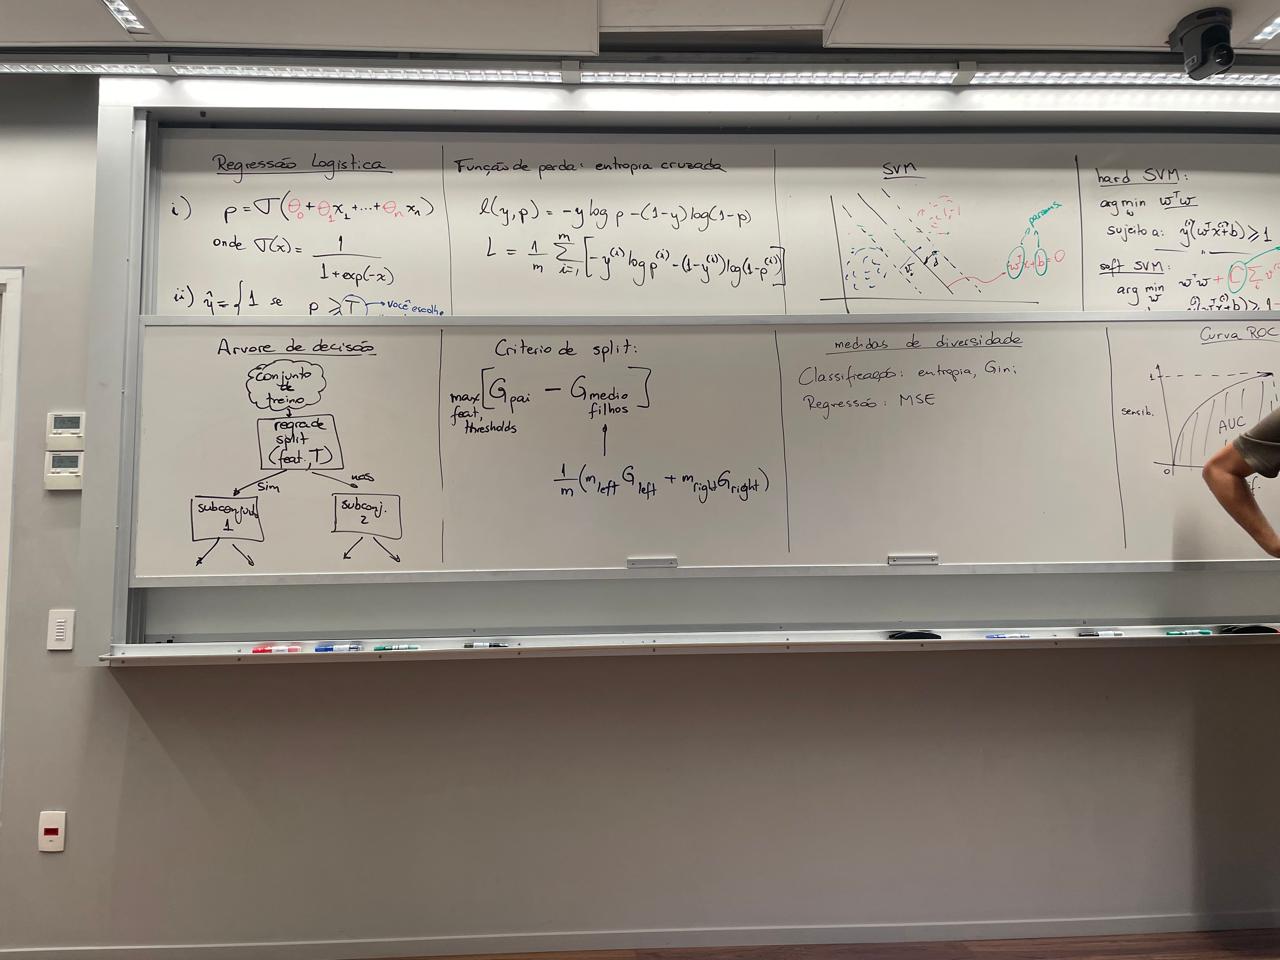 Regressão Logística
i) p = σ(θ₀ + θ₁x₁ + ... + θₙxₙ)
onde σ(x) = 1 / (1 + exp(-x))
ii) ŷ = { 1 se p ≥ T → você escolhe
Função de perda: entropia cruzada
l(y, p) = -y log p - (1-y) log(1-p)
L = 1/m Σᵢ₌₁ᵐ [-y⁽ⁱ⁾ log p⁽ⁱ⁾ - (1-y⁽ⁱ⁾) log(1-p⁽ⁱ⁾)]
SVM
params
wᵀx + b = 0
hard SVM:
arg min w wᵀw
sujeito a: y⁽ⁱ⁾(wᵀx⁽ⁱ⁾+b) ≥ 1
soft SVM:
arg min w wᵀw + C Σᵢ
Arvore de decisão
Conjunto
de
treino
regra de
split
(feat., T)
sim
não
subconjunto
1
subconj.
2
Criterio de split:
max feat., thresholds [G pai - G medio filhos]
1/m (m left G left + m right G right)
medidas de diversidade
Classificação: entropia, Gini
Regressão: MSE
Curva ROC
1
sensib.
AUC
0